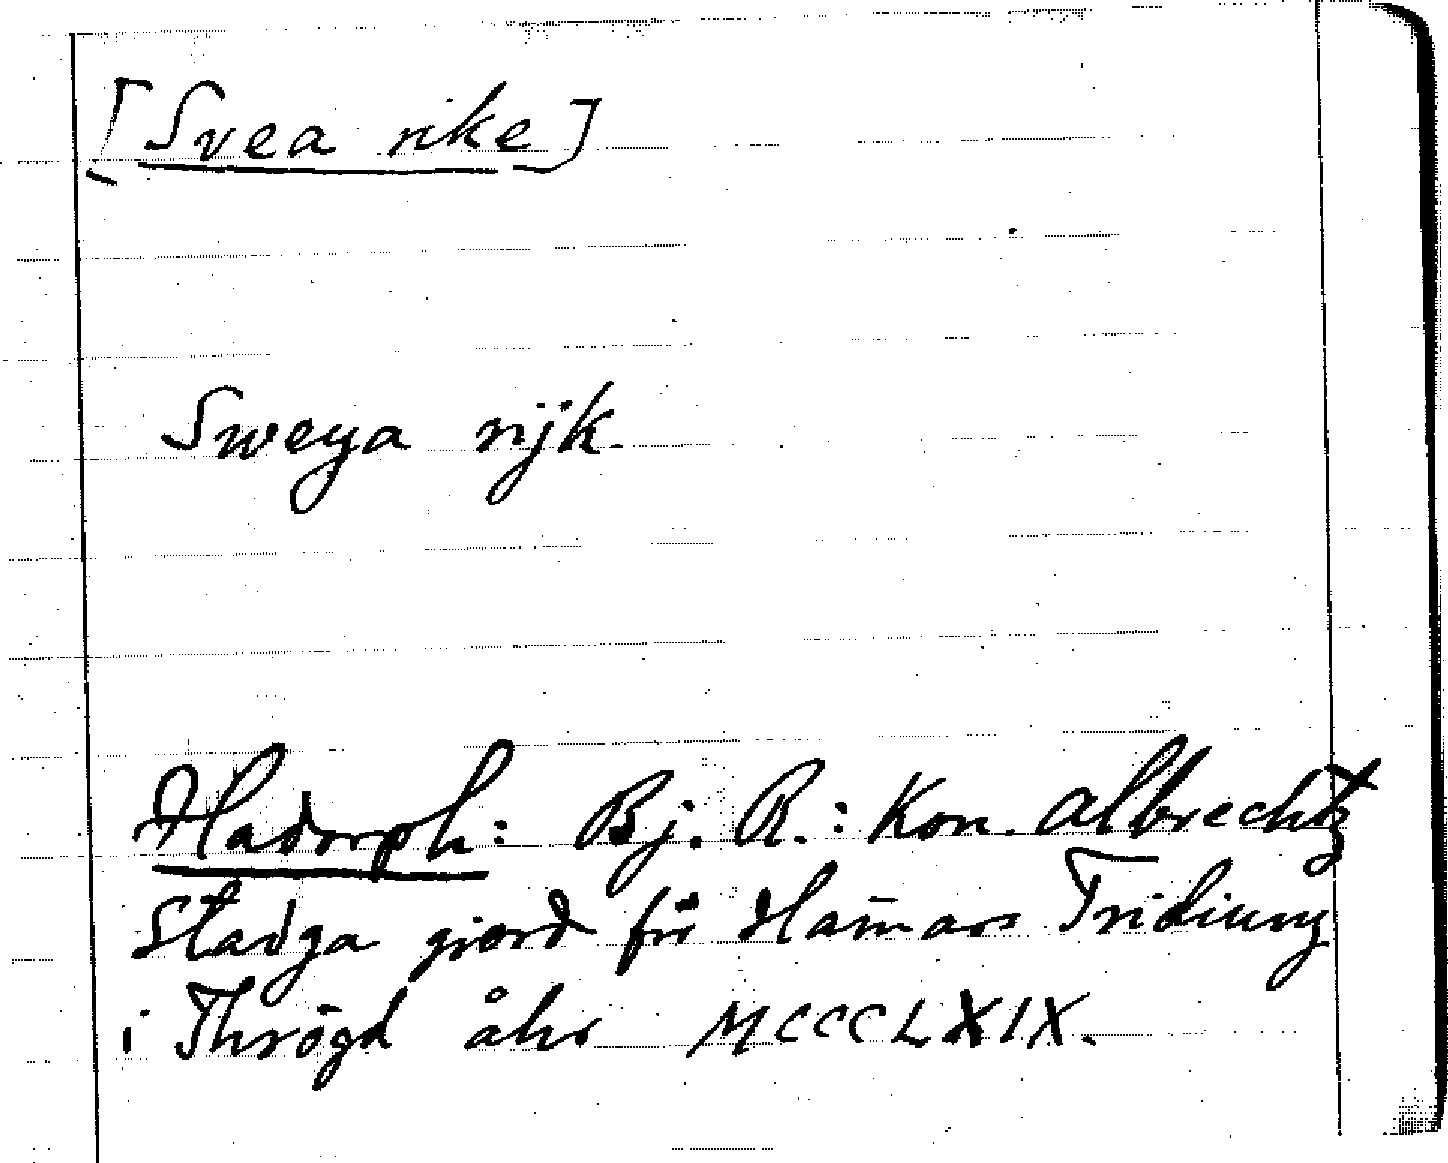 [Svea rike]
Sweya rijk
Hadorph: Bj. R.: Kon. Albrechtz
Stadga giord för Ham̄ars Tridiung
i Thrögd åhr MCCCLXIX.